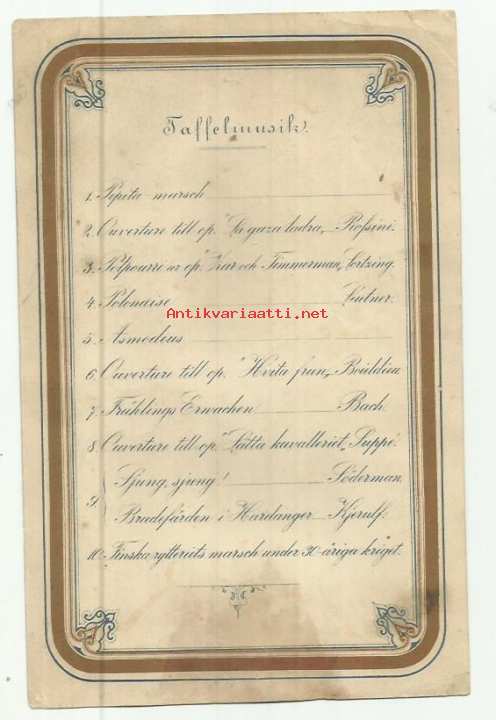 Taffelmusik.
1. Pepita-marsch
2. Ouverture till op. "La gaza ladra„ Rossini.
3. Potpourri ur op. "Zar och Timmerman„ Lortzing.
4. Polonaise Leitner.
Antikvariaatti.net
5. Asmodeus
6. Ouverture till op. "Hvita frun„ Boieldieu
7. Frühlings Erwachen Bach.
8. Ouverture till op. "Lätta kavalleriet„ Suppé.
9. Sjung, sjung! Söderman.
Brudefärden i Hardanger Kjerulf.
10. Finska rytteriets marsch under 30-åriga kriget.